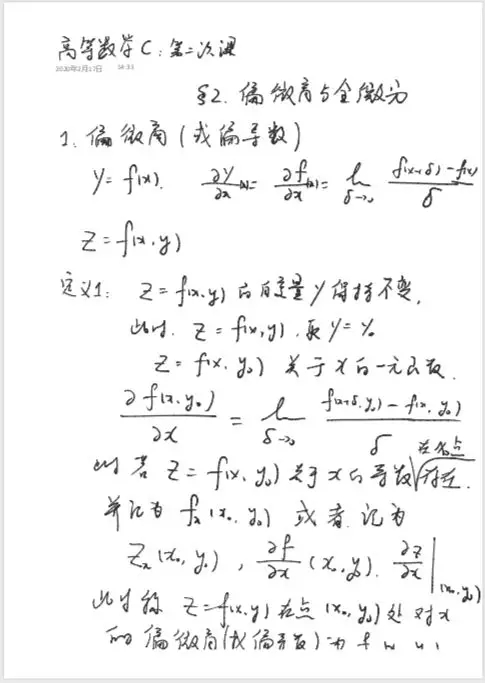 高等数学C:第二次课
2020年2月27日 14:33
§2. 偏微商与全微分
1. 偏微商(或偏导数)
y = f(x). ∂y/∂x(x) = ∂f/∂x(x) = lim δ→0 f(x+δ)-f(x)/δ
Z = f(x,y)
定义1: Z = f(x,y) 的自变量 y 保持不变,
此时. Z = f(x,y), 取 y = y₀
Z = f(x, y₀) 关于 x 的一元函数.
∂f(x,y₀)/∂x = lim δ→0 f(x+δ,y₀)-f(x,y₀)/δ
在x₀点
此时若 Z = f(x,y₀) 关于 x 的导数√存在.
并记为 fₓ(x₀,y₀) 或者记为
Zₓ(x₀,y₀), ∂f/∂x (x₀,y₀). ∂z/∂x|(x₀,y₀)
此时称 Z=f(x,y) 在点 (x₀,y₀) 处 对 x
的偏微商(或偏导数)为 f